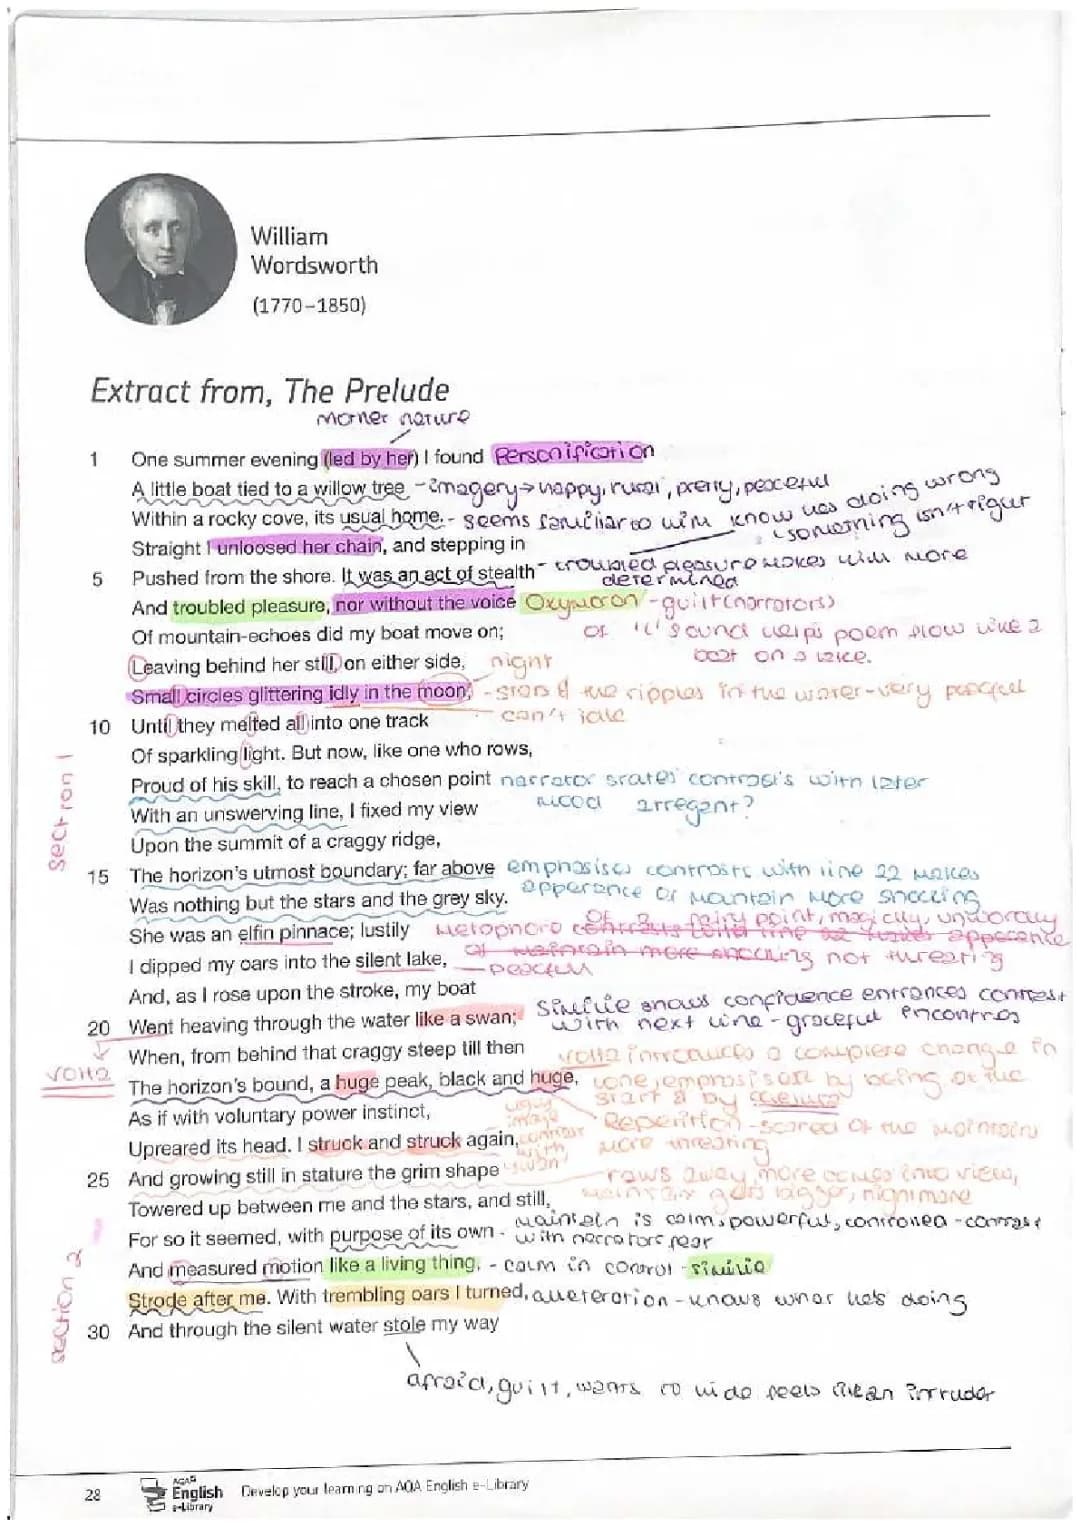 William
Wordsworth
(1770–1850)
Extract from, The Prelude
mother nature
1 One summer evening (led by her) I found Personification
A little boat tied to a willow tree - imagery → happy, rural, pretty, peaceful
Within a rocky cove, its usual home. - seems familiar to him know hes doing wrong
something isn't right
Straight I unloosed her chain, and stepping in
5 Pushed from the shore. It was an act of stealth - troubled pleasure makes him more
determined
And troubled pleasure, nor without the voice Oxymoron - guilt (narrators)
Of mountain-echoes did my boat move on; of 'L' sound helps poem flow like a
boat on a lake.
Leaving behind her still, on either side, night
Small circles glittering idly in the moon, - stars & the ripples in the water - very peaceful
can't
10 Until they melted all into one track
Of sparkling light. But now, like one who rows,
Proud of his skill, to reach a chosen point narrator states contrasts with later
mood arregant?
With an unswerving line, I fixed my view
Upon the summit of a craggy ridge,
section 1
15 The horizon's utmost boundary; far above emphasises contrasts with line 22 makes
apperance of mantain more shocking
Was nothing but the stars and the grey sky.
She was an elfin pinnace; lustily Metaphore contrasts with line 22 makes apperence
of a fairy point, magically, unworldly
I dipped my oars into the silent lake, of maintain more shocking not threating
- peaceful
And, as I rose upon the stroke, my boat
20 Went heaving through the water like a swan; Similie shows confidence entrances contrast
with next line - graceful
When, from behind that craggy steep till then
volta volta introduces a complete change in
The horizon's bound, a huge peak, black and huge, tone, emphasised by being at the
start & by
As if with voluntary power instinct,
Upreared its head. I struck and struck again, Repetition - scared of the mountain
more threating
ugly image contrast with 'swan'
25 And growing still in stature the grim shape rows away, more comes into view,
maintain gets bigger, nightmare
Towered up between me and the stars, and still,
For so it seemed, with purpose of its own - Maintain is calm, powerful, controlled - contrast
with narrators fear
And measured motion like a living thing, - calm in control - similie
section 2
Strode after me. With trembling oars I turned, alleteration - knows what he's doing
30 And through the silent water stole my way
afraid, guilt, wants to hide feels like an intruder
28
AQA
English
e-Library
Develop your learning on AQA English e-Library